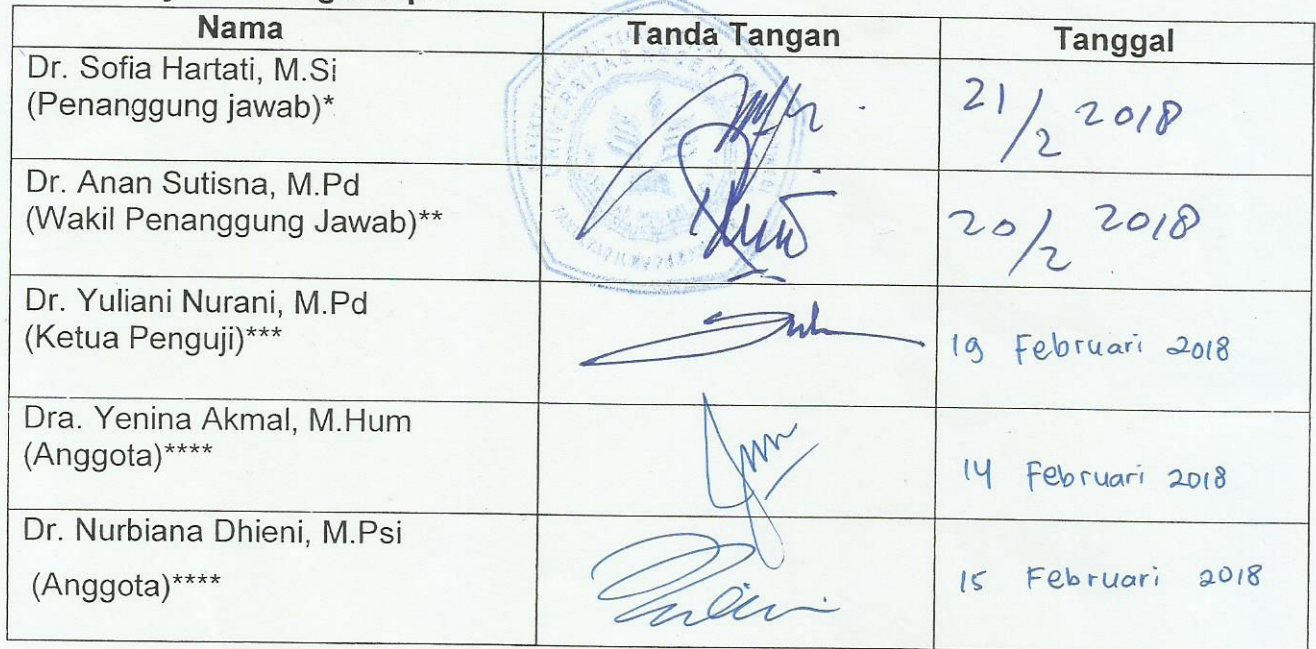 Nama Tanda Tangan Tanggal
Dr. Sofia Hartati, M.Si
(Penanggung jawab)* 21/2 2018
Dr. Anan Sutisna, M.Pd
(Wakil Penanggung Jawab)** 20/2 2018
Dr. Yuliani Nurani, M.Pd
(Ketua Penguji)*** 19 Februari 2018
Dra. Yenina Akmal, M.Hum
(Anggota)**** 14 Februari 2018
Dr. Nurbiana Dhieni, M.Psi
(Anggota)**** 15 Februari 2018